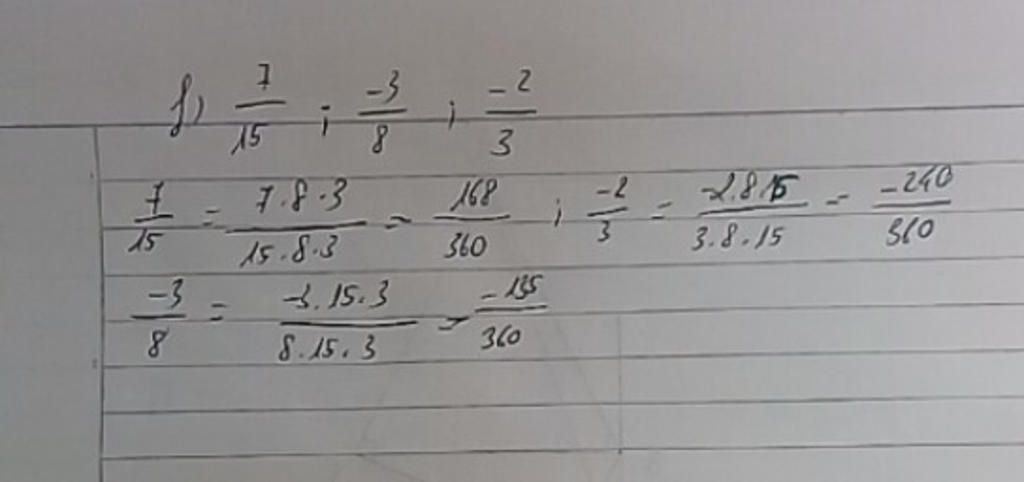 f) 7/15 ; -3/8 ; -2/3
7/15 = 7.8.3/15.8.3 = 168/360 ; -2/3 = -2.8.15/3.8.15 = -240/360
-3/8 = -3.15.3/8.15.3 = -135/360